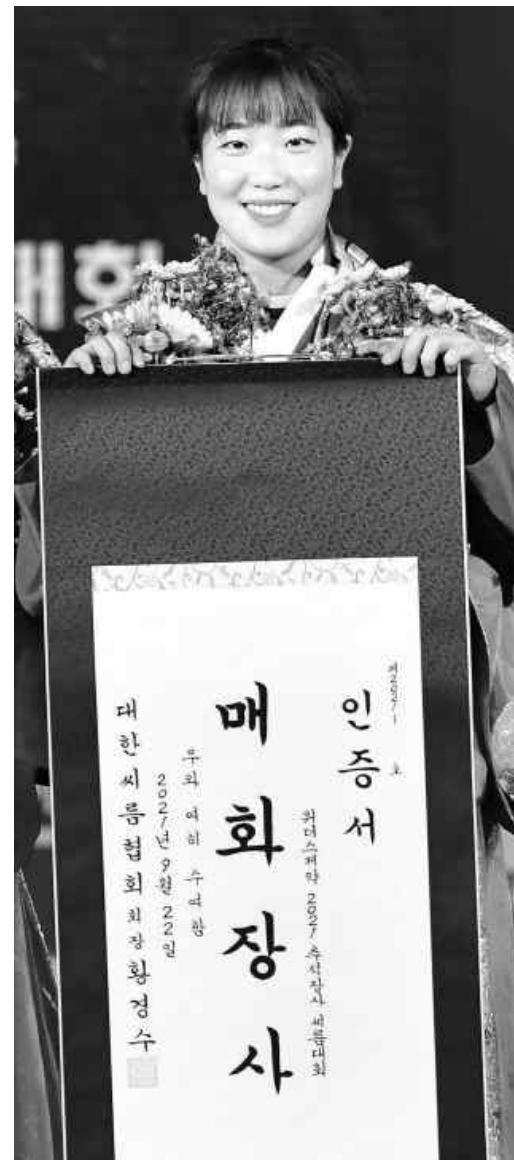 대회
인증서
위더스제약 2021 추석장사 씨름대회
매화장사
수여함
2021년 9월 22일
대한씨름협회 회장 황경수